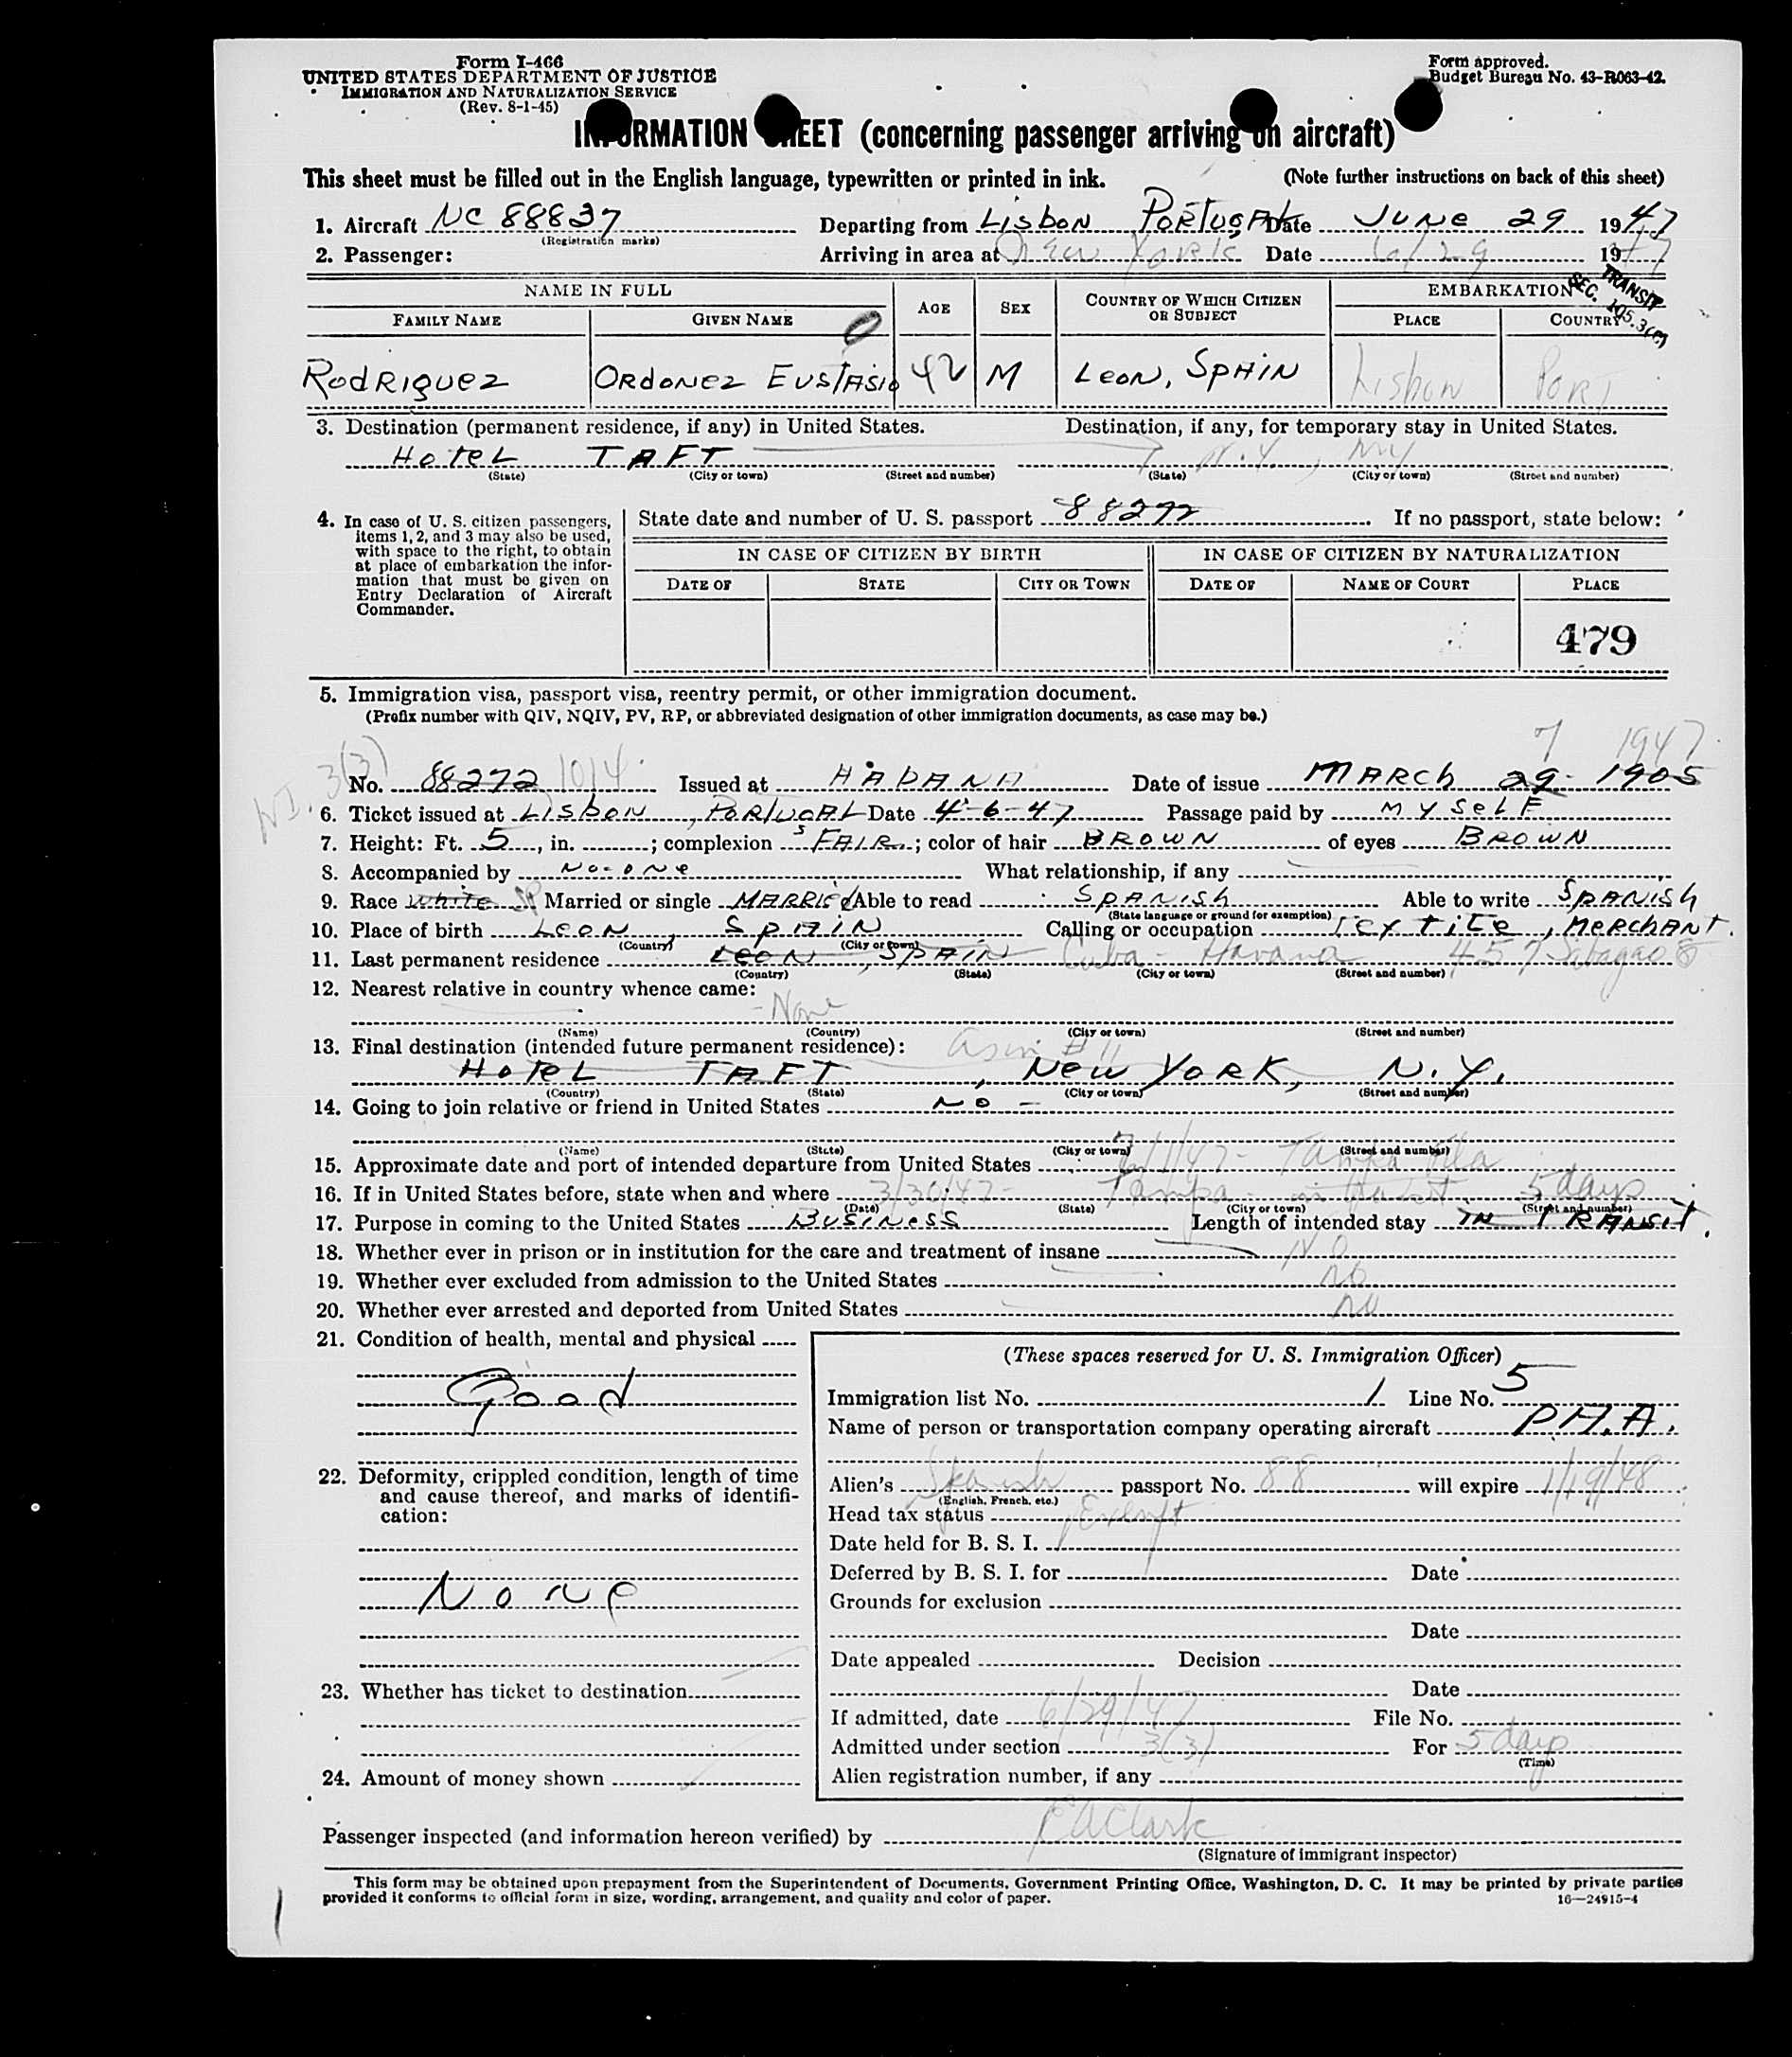 Form I-466
UNITED STATES DEPARTMENT OF JUSTICE
IMMIGRATION AND NATURALIZATION SERVICE
(Rev. 8-1-45)
Form approved.
Budget Bureau No. 43-R063-42.
INFORMATION SHEET (concerning passenger arriving on aircraft)
This sheet must be filled out in the English language, typewritten or printed in ink. (Note further instructions on back of this sheet)
1. Aircraft NC 88837 Departing from Lisbon Portugal Date June 29 1947
(Registration marks)
2. Passenger: Arriving in area at New York Date 6/29 1947
TRANSIT
SEC. 105.3(c)
NAME IN FULL AGE SEX COUNTRY OF WHICH CITIZEN OR SUBJECT EMBARKATION
FAMILY NAME GIVEN NAME PLACE COUNTRY
Rodriguez Ordonez Eustasio 42 M Leon, Spain Lisbon Port
3. Destination (permanent residence, if any) in United States. Destination, if any, for temporary stay in United States.
Hotel TAFT N.Y., NY
(State) (City or town) (Street and number) (State) (City or town) (Street and number)
4. In case of U. S. citizen passengers, items 1, 2, and 3 may also be used, with space to the right, to obtain at place of embarkation the information that must be given on Entry Declaration of Aircraft Commander.
State date and number of U. S. passport 88272 If no passport, state below:
IN CASE OF CITIZEN BY BIRTH IN CASE OF CITIZEN BY NATURALIZATION
DATE OF STATE CITY OR TOWN DATE OF NAME OF COURT PLACE
479
5. Immigration visa, passport visa, reentry permit, or other immigration document.
(Prefix number with QIV, NQIV, PV, RP, or abbreviated designation of other immigration documents, as case may be.)
3(3) 7 1947
No. 88272 1014 Issued at HABANA Date of issue MARCH 29 1905
6. Ticket issued at Lisbon, Portugal Date 4-6-47 Passage paid by myself
7. Height: Ft. 5, in. ; complexion FAIR; color of hair BROWN of eyes BROWN
8. Accompanied by No-one What relationship, if any
9. Race White Sp Married or single MARRIED Able to read SPANISH Able to write SPANISH
(State language or ground for exemption)
10. Place of birth Leon, SPAIN Calling or occupation Textile, MERCHANT.
(Country) (City or town)
11. Last permanent residence Leon, SPAIN Cuba - Havana 457
(Country) (State) (City or town) (Street and number)
12. Nearest relative in country whence came:
- None
(Name) (Country) (City or town) (Street and number)
13. Final destination (intended future permanent residence): # 11
Hotel TAFT, New York, N.Y.
(Country) (State) (City or town) (Street and number)
14. Going to join relative or friend in United States No -
(Name) (State) (City or town) (Street and number)
15. Approximate date and port of intended departure from United States 7/1/47 - Tampa Fla
16. If in United States before, state when and where 3/30/47 - Tampa - in transit 5 days
(Date) (State) (City or town) (Street and number)
17. Purpose in coming to the United States Business Length of intended stay IN TRANSIT.
18. Whether ever in prison or in institution for the care and treatment of insane No
19. Whether ever excluded from admission to the United States No
20. Whether ever arrested and deported from United States No
21. Condition of health, mental and physical
Good
22. Deformity, crippled condition, length of time and cause thereof, and marks of identification:
None
23. Whether has ticket to destination
24. Amount of money shown
(These spaces reserved for U. S. Immigration Officer)
Immigration list No. 1 Line No. 5
Name of person or transportation company operating aircraft P.A.A.
Alien's Spanish passport No. 88 will expire 1/19/48
(English, French, etc.)
Head tax status Exempt
Date held for B. S. I.
Deferred by B. S. I. for Date
Grounds for exclusion
Date
Date appealed Decision
Date
If admitted, date 6/29/47 File No.
Admitted under section 3(3) For 5 days
(Time)
Alien registration number, if any
Passenger inspected (and information hereon verified) by EA Clark
(Signature of immigrant inspector)
This form may be obtained upon prepayment from the Superintendent of Documents, Government Printing Office, Washington, D. C. It may be printed by private parties
provided it conforms to official form in size, wording, arrangement, and quality and color of paper. 16—24915-4